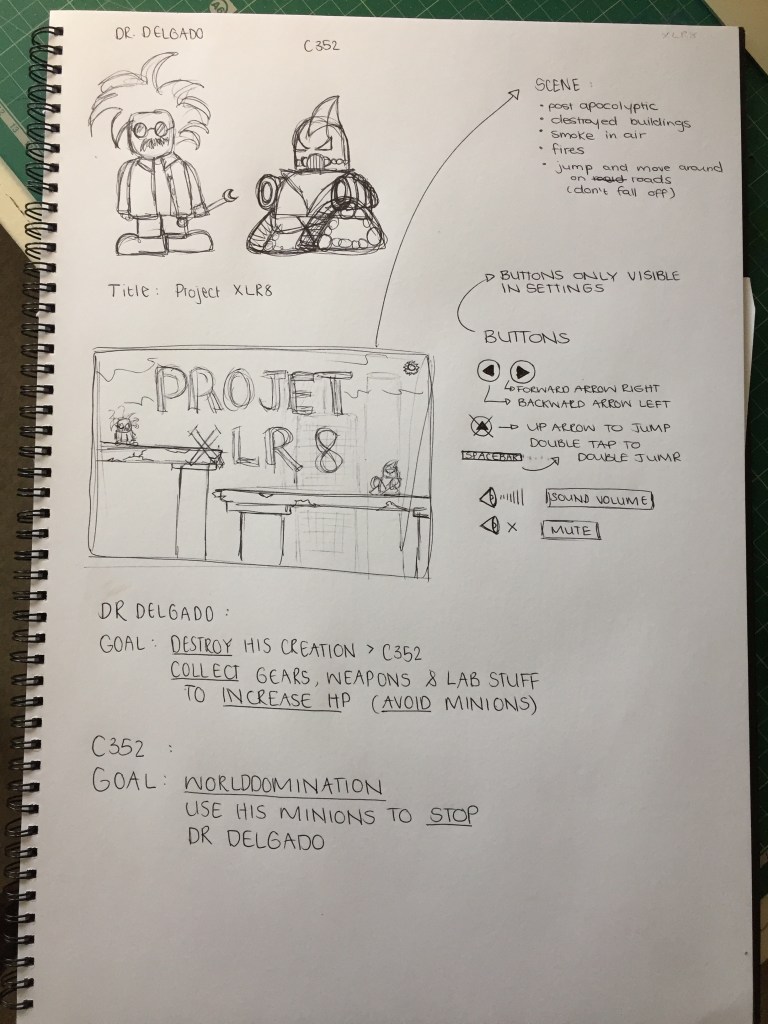 DR. DELGADO
C352
XLR8
SCENE :
• post apocolyptic
• destroyed buildings
• smoke in air
• fires
• jump and move around
on roads
(don't fall off)
Title: Project XLR8
BUTTONS ONLY VISIBLE
IN SETTINGS
BUTTONS
FORWARD ARROW RIGHT
BACKWARD ARROW LEFT
UP ARROW TO JUMP
DOUBLE TAP TO
SPACEBAR DOUBLE JUMP
SOUND VOLUME
MUTE
PROJET
XLR8
DR DELGADO :
GOAL: DESTROY HIS CREATION > C352
COLLECT GEARS, WEAPONS & LAB STUFF
TO INCREASE HP (AVOID MINIONS)
C352 :
GOAL: WORLDDOMINATION
USE HIS MINIONS TO STOP
DR DELGADO